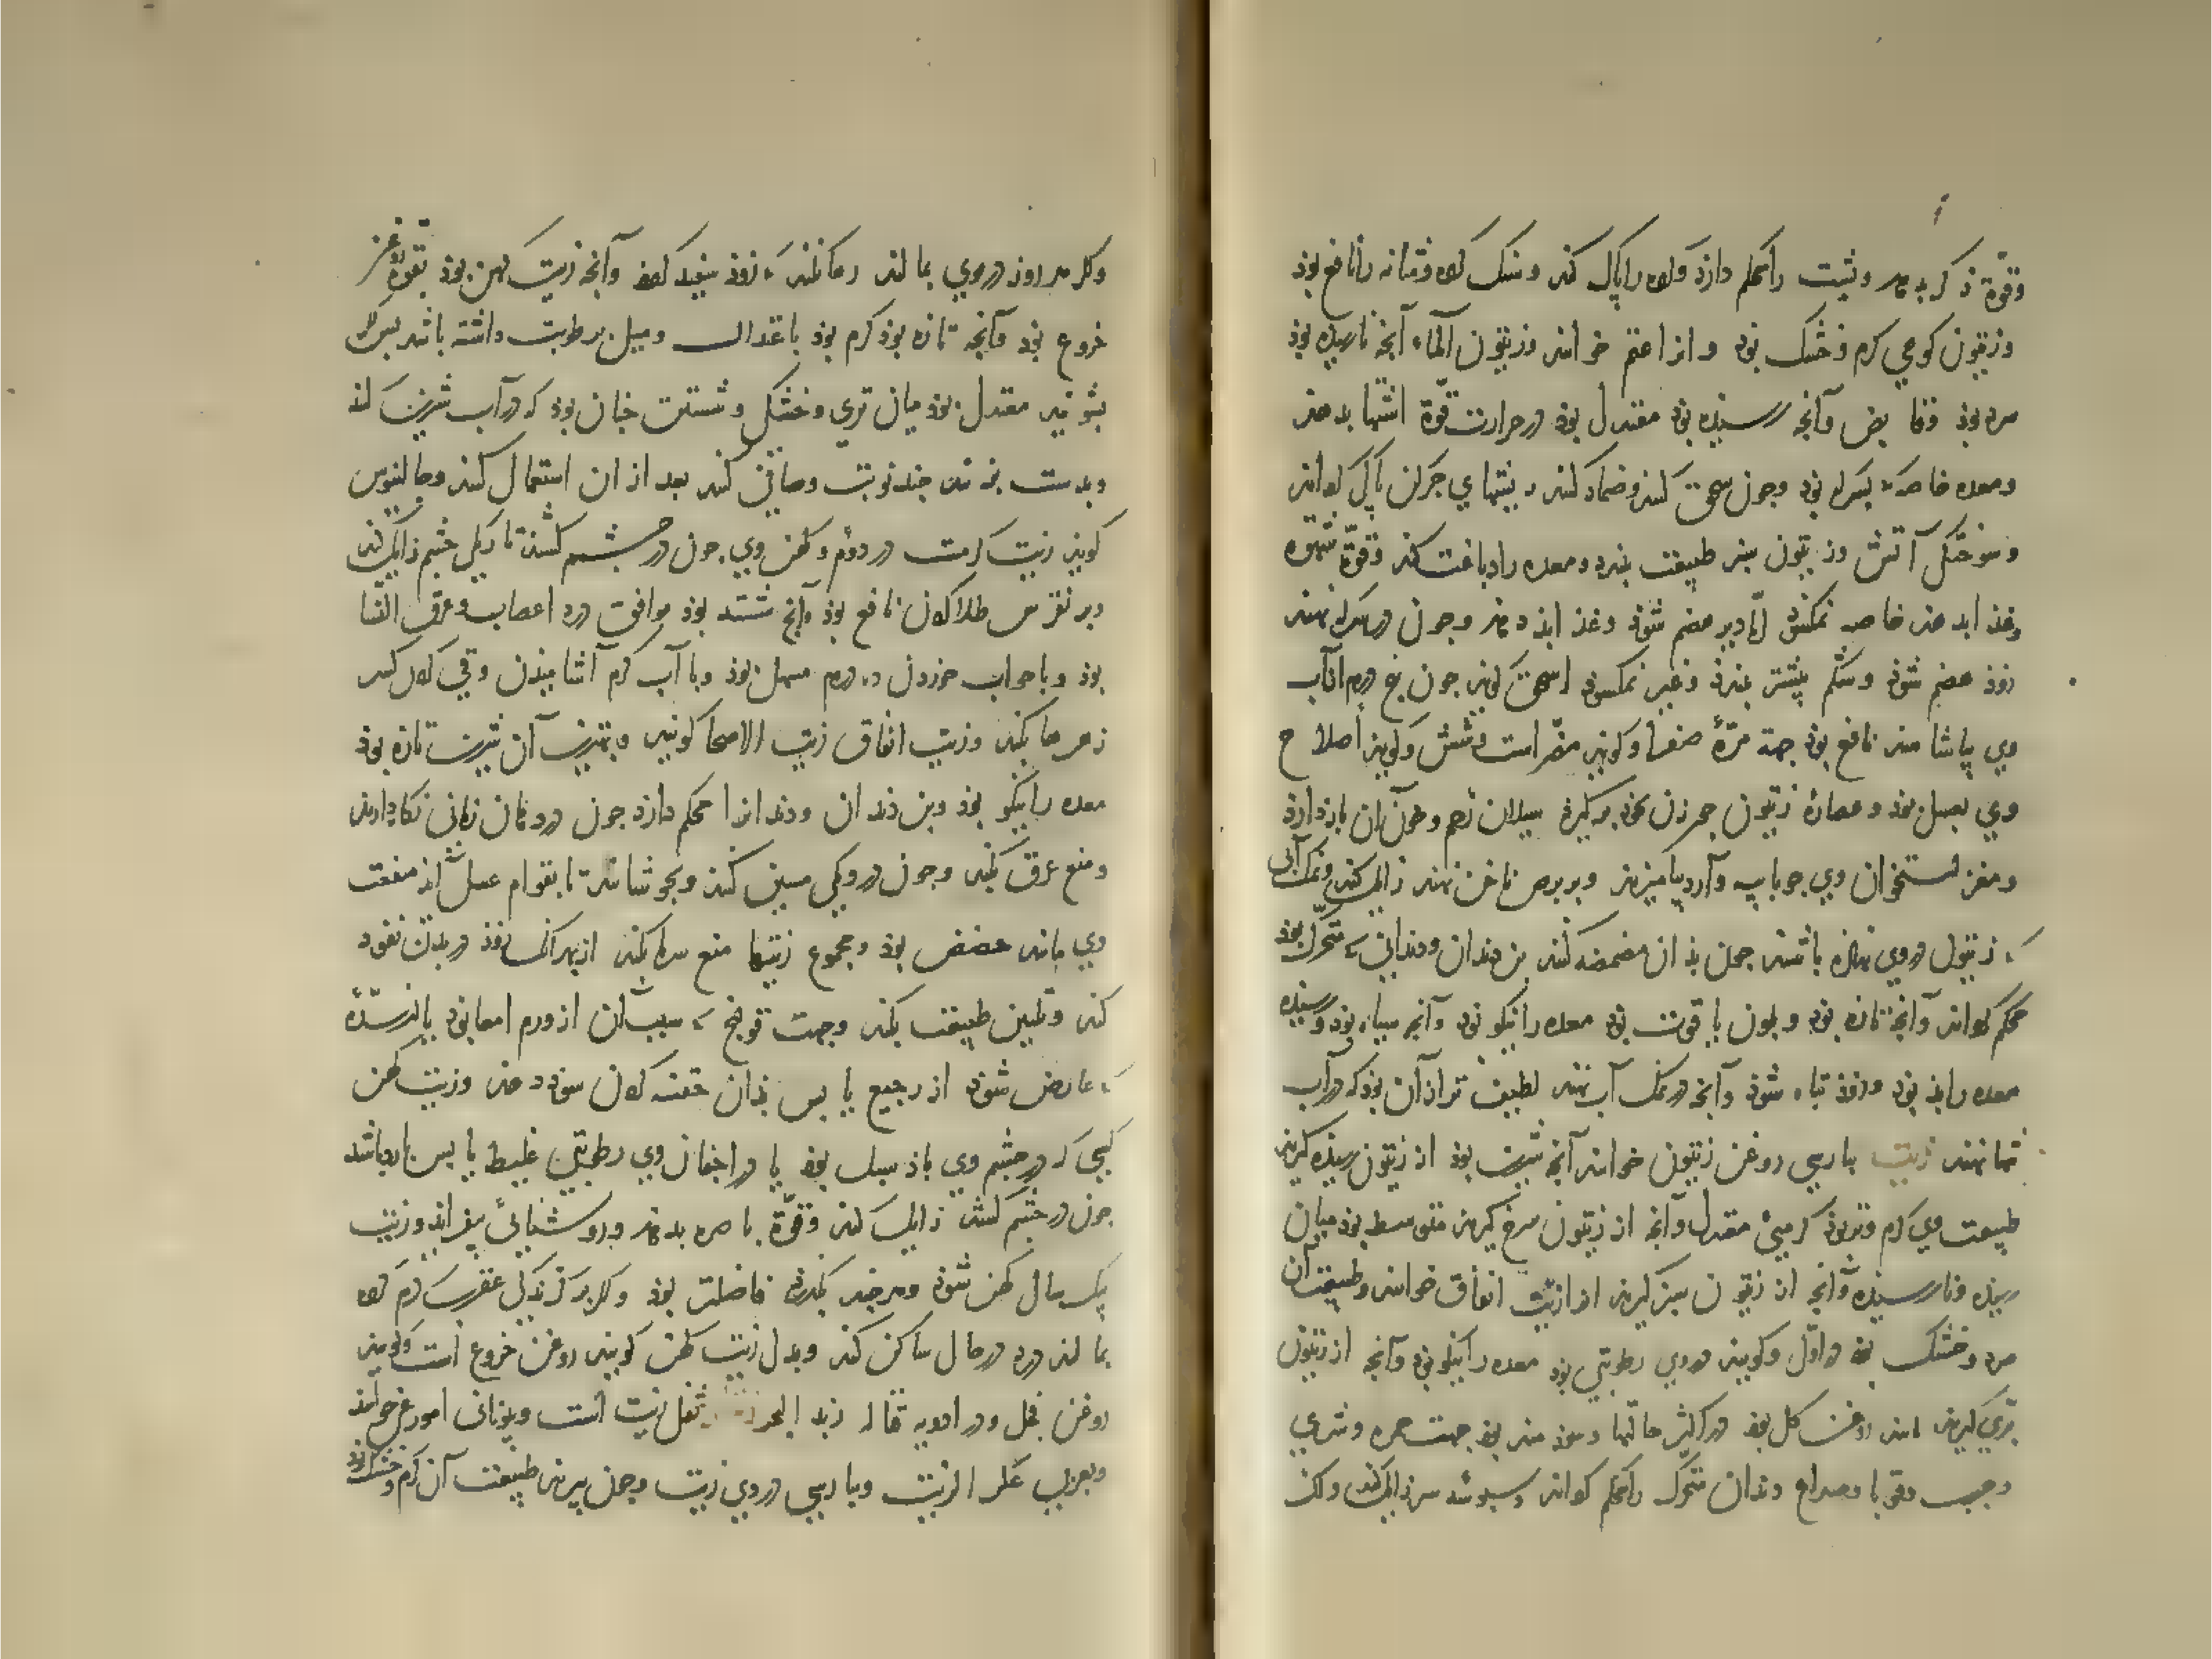 وقوّة ذکر بدهد وپشت را محکم دارد وکرده را پاک کند وسنک کرده ومثانه را نافع بود
وزیتون کوهی کرم وخشک بود وانرا عتم خوانند وزیتون الماء آنچه نارسیده بود
سرد بود وقابض وآنچه رسیده بود معتدل بود در حرارت قوّة اشتها بدهد
ومعده خاصه که بسرکه بود وجون سحق کنند وضماد کنند ریشهای جرکن پاک کرداند
وسوختکی آتش وزیتون سبز طبیعت ببندد ومعده را دباغت کند وقوّة شهوة
وغذا بدهد خاصه نمکسود امّا دیر هضم شود وغذا اند دهد وجون در سرکه نهند
زود هضم شود وشکم بیشتر ببندد وغیر نمکسود اسحق کوید جون پنج درم از آب
وی بیاشامند نافع بود جهة مرّة صفرا وکویند مضر است بشش وکویند اصلاح
وی بعسل بود وعصارهٔ زیتون جون زن بخود برکیرد سیلان رحم وخون آن باز دارد
ومغز استخوان وی جو با پیه وآرد بیامیزند وبر برص ناخن نهند زایل کند ونمک آبی
که زیتون در وی نهاده باشند جون بدان مضمضه کنند بن دندان ودندانی که متحرک بود
محکم کرداند وآنچه تازه بود وبلون یاقوت بود معده را نیکو بود وآنچه سیاه بود ورسیده
معده را بد بود وزود تباه شود وآنچه در نمک آب نهند لطیف تر از آن بود که در آب
تنها نهند زیت بپارسی روغن زیتون خوانند آنچه شیرین بود از زیتون رسیده کیرند
طبیعت وی کرم وتر بود کرمیئ معتدل وآنچه از زیتون سرخ کیرند متوسط بود میان
رسیده ونارسیده وآنچه از زیتون سبز کیرند انرا زیت انفاق خوانند وطبیعت آن
سرد وخشک بود در اوّل وکویند در وی رطوبتی بود معده را نیکو بود وآنچه از زیتون
برّی کیرند مانند روغن کل بود در اکثر حالتها وسودمند بود جهت حمره وشری
وجرب وقوبا وصداع ودندان متحرک را محکم کرداند وسبوسهٔ سر زایل کند واکر
وکل هر روز در موی بمالند رها نکند که زود سپید کردد وآنچه زیت کهن بود بقوّة روغن
خروع بود وآنچه تازه بود کرم بود باعتدال ومیل برطوبت داشته باشد بس اکر
بشویند معتدل بود میان تری وخشکی وشستن جنان بود که در آب شیرین کنند
وبدست بزنند چند نوبت وصافی کنند بعد از ان استعمال کنند وجالینوس
کوید زیت کرمست در دوّم وکهن وی جون در چشم کشند تاریکی چشم زایل کند
وبر نقرس طلا کردن نافع بود وآنچه شسته بود موافق درد اعصاب وعرق النّسا
بود وبا جواب خوردن ده درم مسهل بود وبا آب کرم آشامیدن وقی کردن کسر
زهرها بکند وزیت انفاق زیت الاصحا کویند وبهترین آن شیرین تازه بود
معده را نیکو بود وبن دندان ودندانرا محکم دارد جون در دهان زمانی نکاه دارند
ومنع عرق بکند وجون در دیکی مسین کنند وبجوشانند تا بقوام عسل آید منفعت
وی مانند حضض بود ومجموع زیتها منع سرما بکند از بهر آنک زود در بدن نفوذ
کند وتلیین طبیعت بکند وجهت قولنج که سبب آن از ورم امعا بود یا از سدّهٔ
که عارض شود از رجیع یابس بدان حقنه کردن سود دهد وزیت کهن
کسی که در چشم وی باد سبل بود یا در اجفان وی رطوبتی غلیظ یا یبس ناک باشد
جون در چشم کشند زایل کند وقوّة باصره بدهد وروشنائی بیفزاید وزیت
یکسال کهن شود وهر چند بکذرد فاضلتر بود واکر بر کزندکی عقرب کرم کرده
بمالند درد در حال ساکن کند وبدل زیت کهن کویند روغن خروع است وکویند
روغن فجل ودر ادویه قتاله زبد البحر ثفل زیت است ویونانی امورغی خوانند
وبعربی عکر الزیت وبپارسی دردی زیت وجون بپزند طبیعت آن کرم وخشک بود